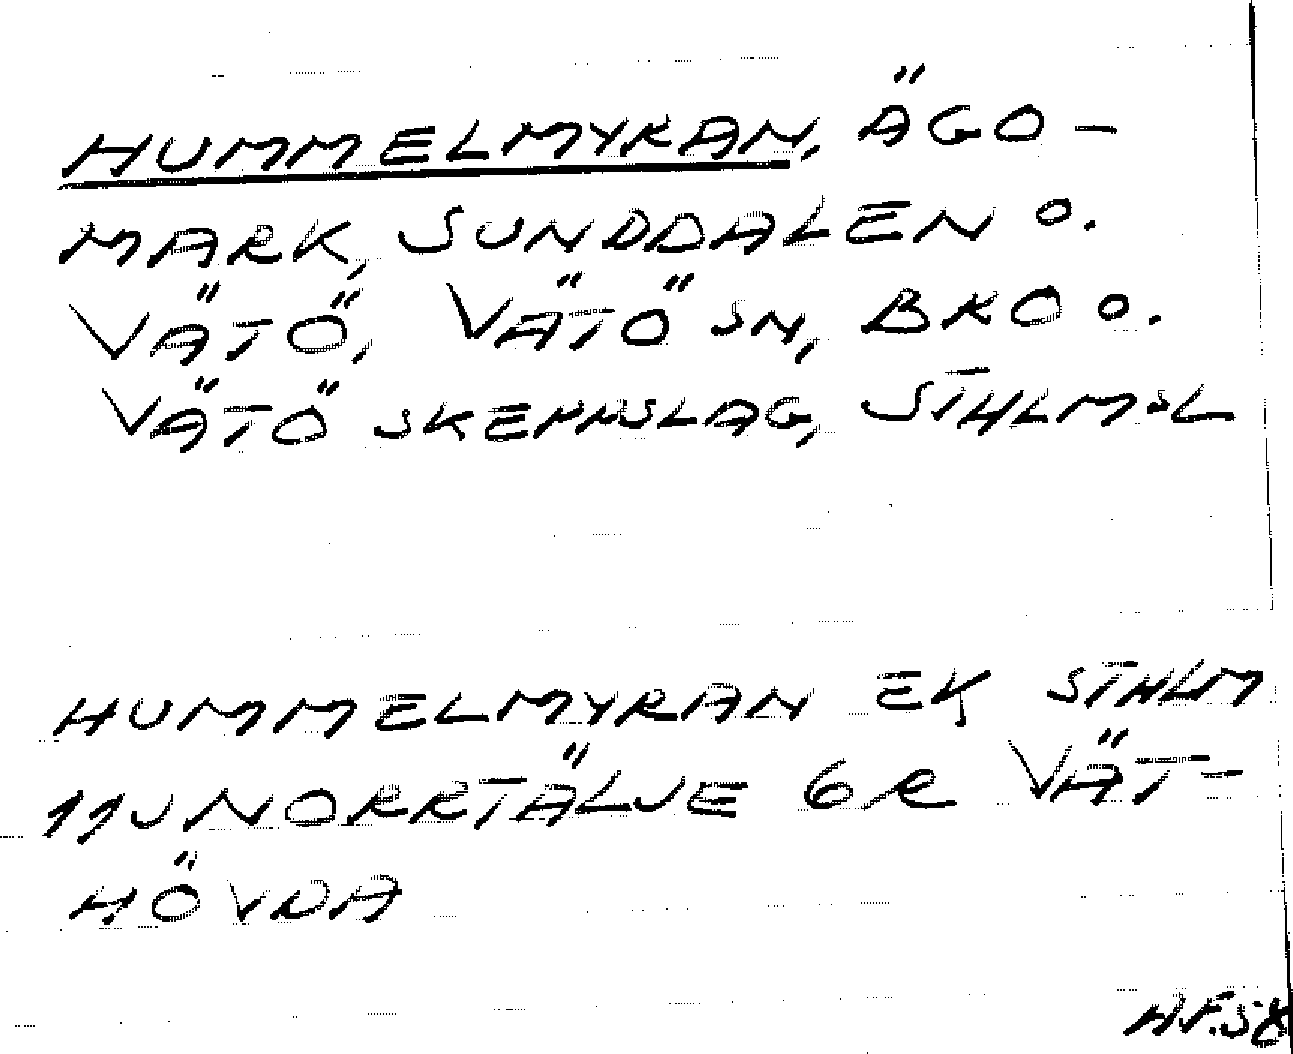 HUMMELMYRAN, ÄGO-
MARK, SUNDDALEN O.
VÄTÖ, VÄTÖ SN, BRO O.
VÄTÖ SKEPPSLAG, STHLMSL
HUMMELMYRAN EK STHLM
11J NORRTÄLJE 6R VÄT-
HÖVDA
H.F.58